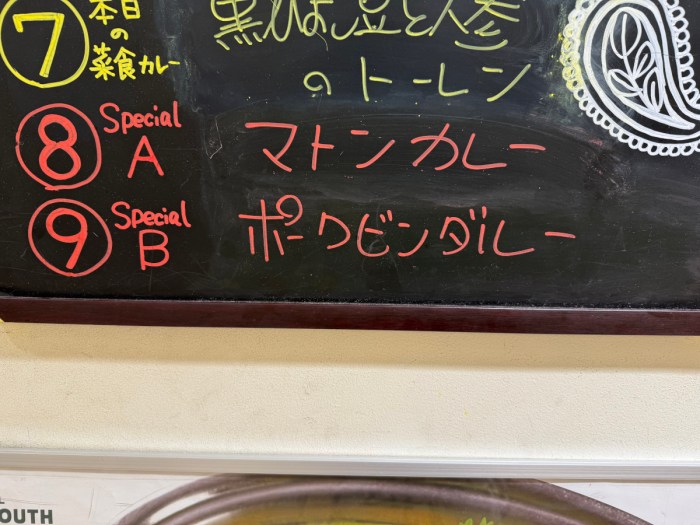 ⑦ 本日の菜食カレー
黒ひよこ豆と人参
のトーレン
⑧ Special A マトンカレー
⑨ Special B ポークビンダルー
OUTH